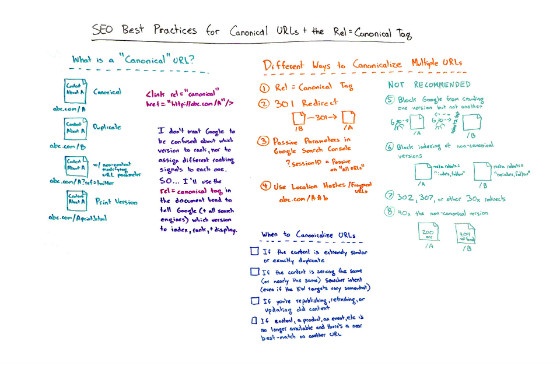 SEO Best Practices for Canonical URLs + the Rel=Canonical Tag
What is a "Canonical" URL?
Content About A
Canonical
abc.com/A
Content About A
Duplicate
abc.com/B
Content About A
non-content modifying URL parameter
abc.com/A?ref=twitter
Content About A
Print Version
abc.com/Aprint.html
<link rel="canonical"
href="http://abc.com/A"/>
I don't want Google to
be confused about which
version to rank, nor to
assign different ranking
signals to each one.
SO... I'll use the
rel=canonical tag in
the document head to
tell Google (+ all search
engines) which version
to index, rank, + display.
Different Ways to Canonicalize Multiple URLs
① Rel=Canonical Tag
② 301 Redirect
301
/B
/A
③ Passive Parameters in
Google Search Console
?sessionID = Passive
on "all URLs"
④ Use Location Hashes/Fragment URLs
abc.com/A#b
When to Canonicalize URLs
If the content is extremely similar
or exactly duplicate
If the content is serving the same
(or nearly the same) searcher intent
(even if the KW targets vary somewhat)
If you're republishing, refreshing, or
updating old content
If content, a product, an event, etc is
no longer available and there's a near
best-match on another URL
NOT RECOMMENDED
⑤ Block Google from crawling
one version but not another
/A
/B
⑥ Block indexing of non-canonical
versions
meta robots=
meta robots=
/A
/B
⑦ 302, 307, or other 30x redirects
⑧ 40x the non-canonical version
200
/A
/B